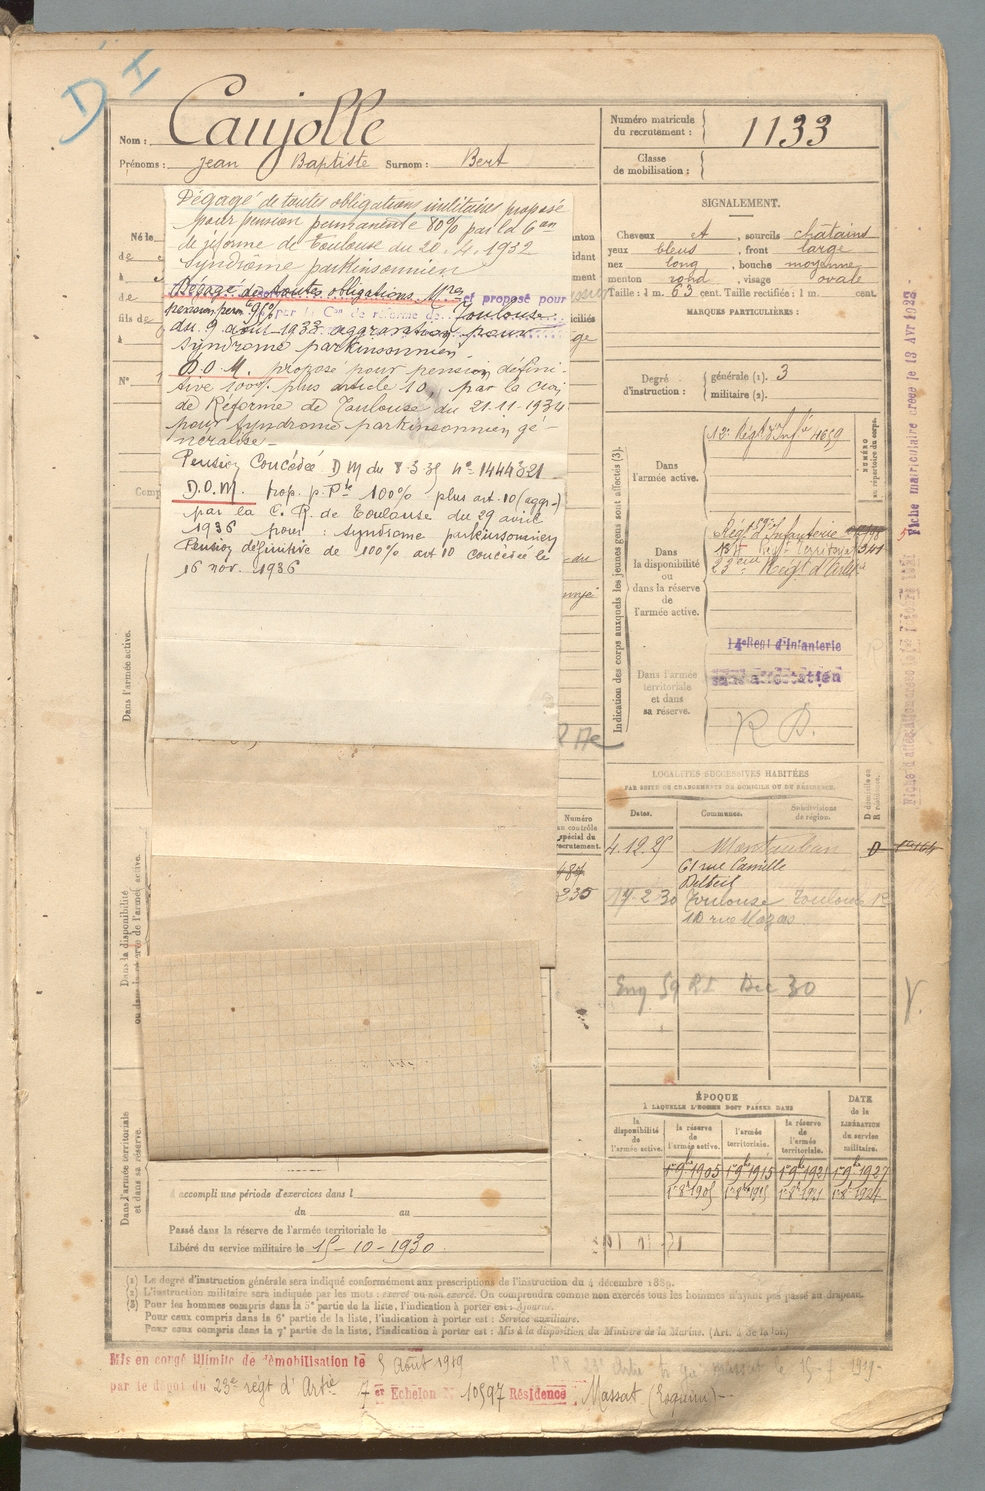 D I
Nom : Caujolle
Prénoms : Jean Baptiste Surnom : Bert
Numéro matricule du recrutement : 1133
Classe de mobilisation :
Dégagé de toutes obligations militaires proposé
pour pension permanente 80% par la
de réforme de Toulouse du 20.4.1932
Syndrôme parkinsonnien
Dégagé de toutes obligations Mres et proposé pour
pension perm 95% par Con de réforme de Toulouse
du 9 août 1933 aggravation pour
syndrome parkinsonnien.
D.O.M. proposé pour pension défini-
tive 100% plus article 10, par la Cion
de Réforme de Toulouse du 21-11-1934
pour Syndrome parkinsonnien gé-
néralisé-
Pension Concédée D M du 8-3-35 no 1444321
D.O.M. prop. p. Pte 100% plus art. 10 (aggr-)
par la C. R. de Toulouse du 29 avril
1936 pour : syndrome parkinsonnien
Pension définitive de 100% art 10 concédée le
16 nov. 1936
Né le
de
à
de
fils de
à
No
SIGNALEMENT.
Cheveux et, sourcils châtains
yeux bleus, front large
nez long, bouche moyenne
menton rond, visage ovale
Taille : 1 m. 63 cent. Taille rectifiée : 1 m. cent.
MARQUES PARTICULIÈRES :
Degré d'instruction : générale (1). 3
militaire (2).
Indication des corps auxquels les jeunes gens sont affectés (3).
NUMÉRO au répertoire du corps.
Dans l'armée active.
12e Régt d'Infie 4659
Dans la disponibilité ou dans la réserve de l'armée active.
Régt d'Infanterie
23e Régt d'Artie
Dans l'armée territoriale et dans sa réserve.
14e Regt d'Infanterie
sans affectation
R D.
Fiche matriculaire créée le 13 Avr 1923
LOCALITÉS SUCCESSIVES HABITÉES
PAR SUITE DE CHANGEMENTS DE DOMICILE OU DE RÉSIDENCE.
Dates. Communes. Subdivisions de région. D domicile ou R résidence.
4.12.25 Montauban D
61 rue Camille
Delteil
17-2-30 Toulouse Toulouse R
10 rue Mazas
59 RI Dec 30
Numéro au contrôle spécial du recrutement.
235
Dans l'armée active.
Dans la disponibilité ou dans la réserve de l'armée active.
Dans l'armée territoriale et dans sa réserve.
ÉPOQUE
À LAQUELLE L'HOMME DOIT PASSER DANS
DATE de la LIBÉRATION du service militaire.
la disponibilité de l'armée active.
la réserve de l'armée active.
l'armée territoriale.
la réserve de l'armée territoriale.
1er 9bre 1905 1er 9bre 1915 1er 9bre 1921 1er 9bre 1927
A accompli une période d'exercices dans l
du au
Passé dans la réserve de l'armée territoriale le
Libéré du service militaire le 15-10-1930
(1) Le degré d'instruction générale sera indiqué conformément aux prescriptions de l'instruction du 4 décembre 1889.
(2) L'instruction militaire sera indiquée par les mots : exercé ou non exercé. On comprendra comme non exercés tous les hommes n'ayant pas passé au drapeau.
(3) Pour les hommes compris dans la 5e partie de la liste, l'indication à porter est : Ajourné.
Pour ceux compris dans la 6e partie de la liste, l'indication à porter est : Service auxiliaire.
Pour ceux compris dans la 7e partie de la liste, l'indication à porter est : Mis à la disposition du Ministre de la Marine. (Art. 4 de la loi.)
Mis en congé illimité de démobilisation le 5 Août 1919
par le dépôt du 23e régt d'Artie 7e Echelon No 10597 Résidence : Massat